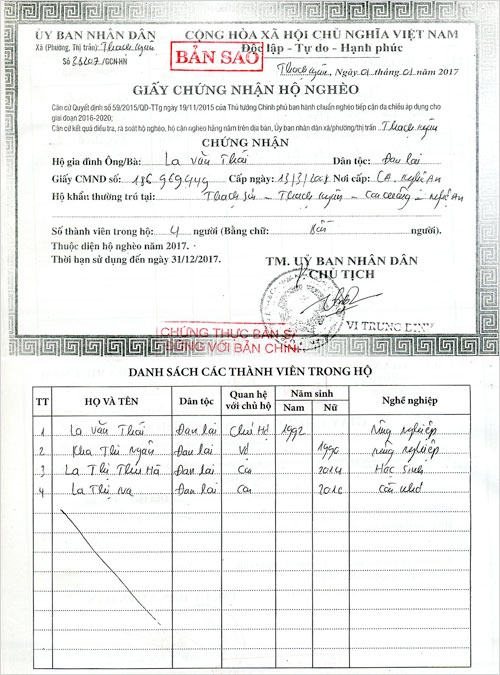 ỦY BAN NHÂN DÂN
Xã (Phường, Thị trấn): Thạch Ngàn
Số /GCN-HN
CỘNG HÒA XÃ HỘI CHỦ NGHĨA VIỆT NAM
Độc lập - Tự do - Hạnh phúc
BẢN SAO
Thạch Ngàn, Ngày 01 tháng 01 năm 2017
GIẤY CHỨNG NHẬN HỘ NGHÈO
Căn cứ Quyết định số 59/2015/QĐ-TTg ngày 19/11/2015 của Thủ tướng Chính phủ ban hành chuẩn nghèo tiếp cận đa chiều áp dụng cho
giai đoạn 2016-2020;
Căn cứ kết quả điều tra, rà soát hộ nghèo, hộ cận nghèo hằng năm trên địa bàn, Ủy ban nhân dân xã/phường/thị trấn Thạch Ngàn
CHỨNG NHẬN
Hộ gia đình Ông/Bà: La Văn Thái Dân tộc: Đan lai
Giấy CMND số: 186969449 Cấp ngày: 13/3/2008 Nơi cấp: CA. Nghệ An
Hộ khẩu thường trú tại: Thạch Sơn - Thạch Ngàn - Con Cuông - Nghệ An
Số thành viên trong hộ: 4 người (Bằng chữ: Bốn người).
Thuộc diện hộ nghèo năm 2017.
Thời hạn sử dụng đến ngày 31/12/2017.
TM. ỦY BAN NHÂN DÂN
CHỦ TỊCH
VI TRUNG ĐỊNH
CHỨNG THỰC BẢN S
ĐÚNG VỚI BẢN CHÍNH
DANH SÁCH CÁC THÀNH VIÊN TRONG HỘ
TT HỌ VÀ TÊN Dân tộc Quan hệ với chủ hộ Năm sinh Nam Nữ Nghề nghiệp
1 La Văn Thái Đan lai Chủ Hộ 1992 Nông nghiệp
2 Kha Thị Ngân Đan lai Vợ 1990 Nông nghiệp
3 La Thị Thu Hà Đan lai Con 2014 Học Sinh
4 La Thị Na Đan lai Con 2016 Còn nhỏ